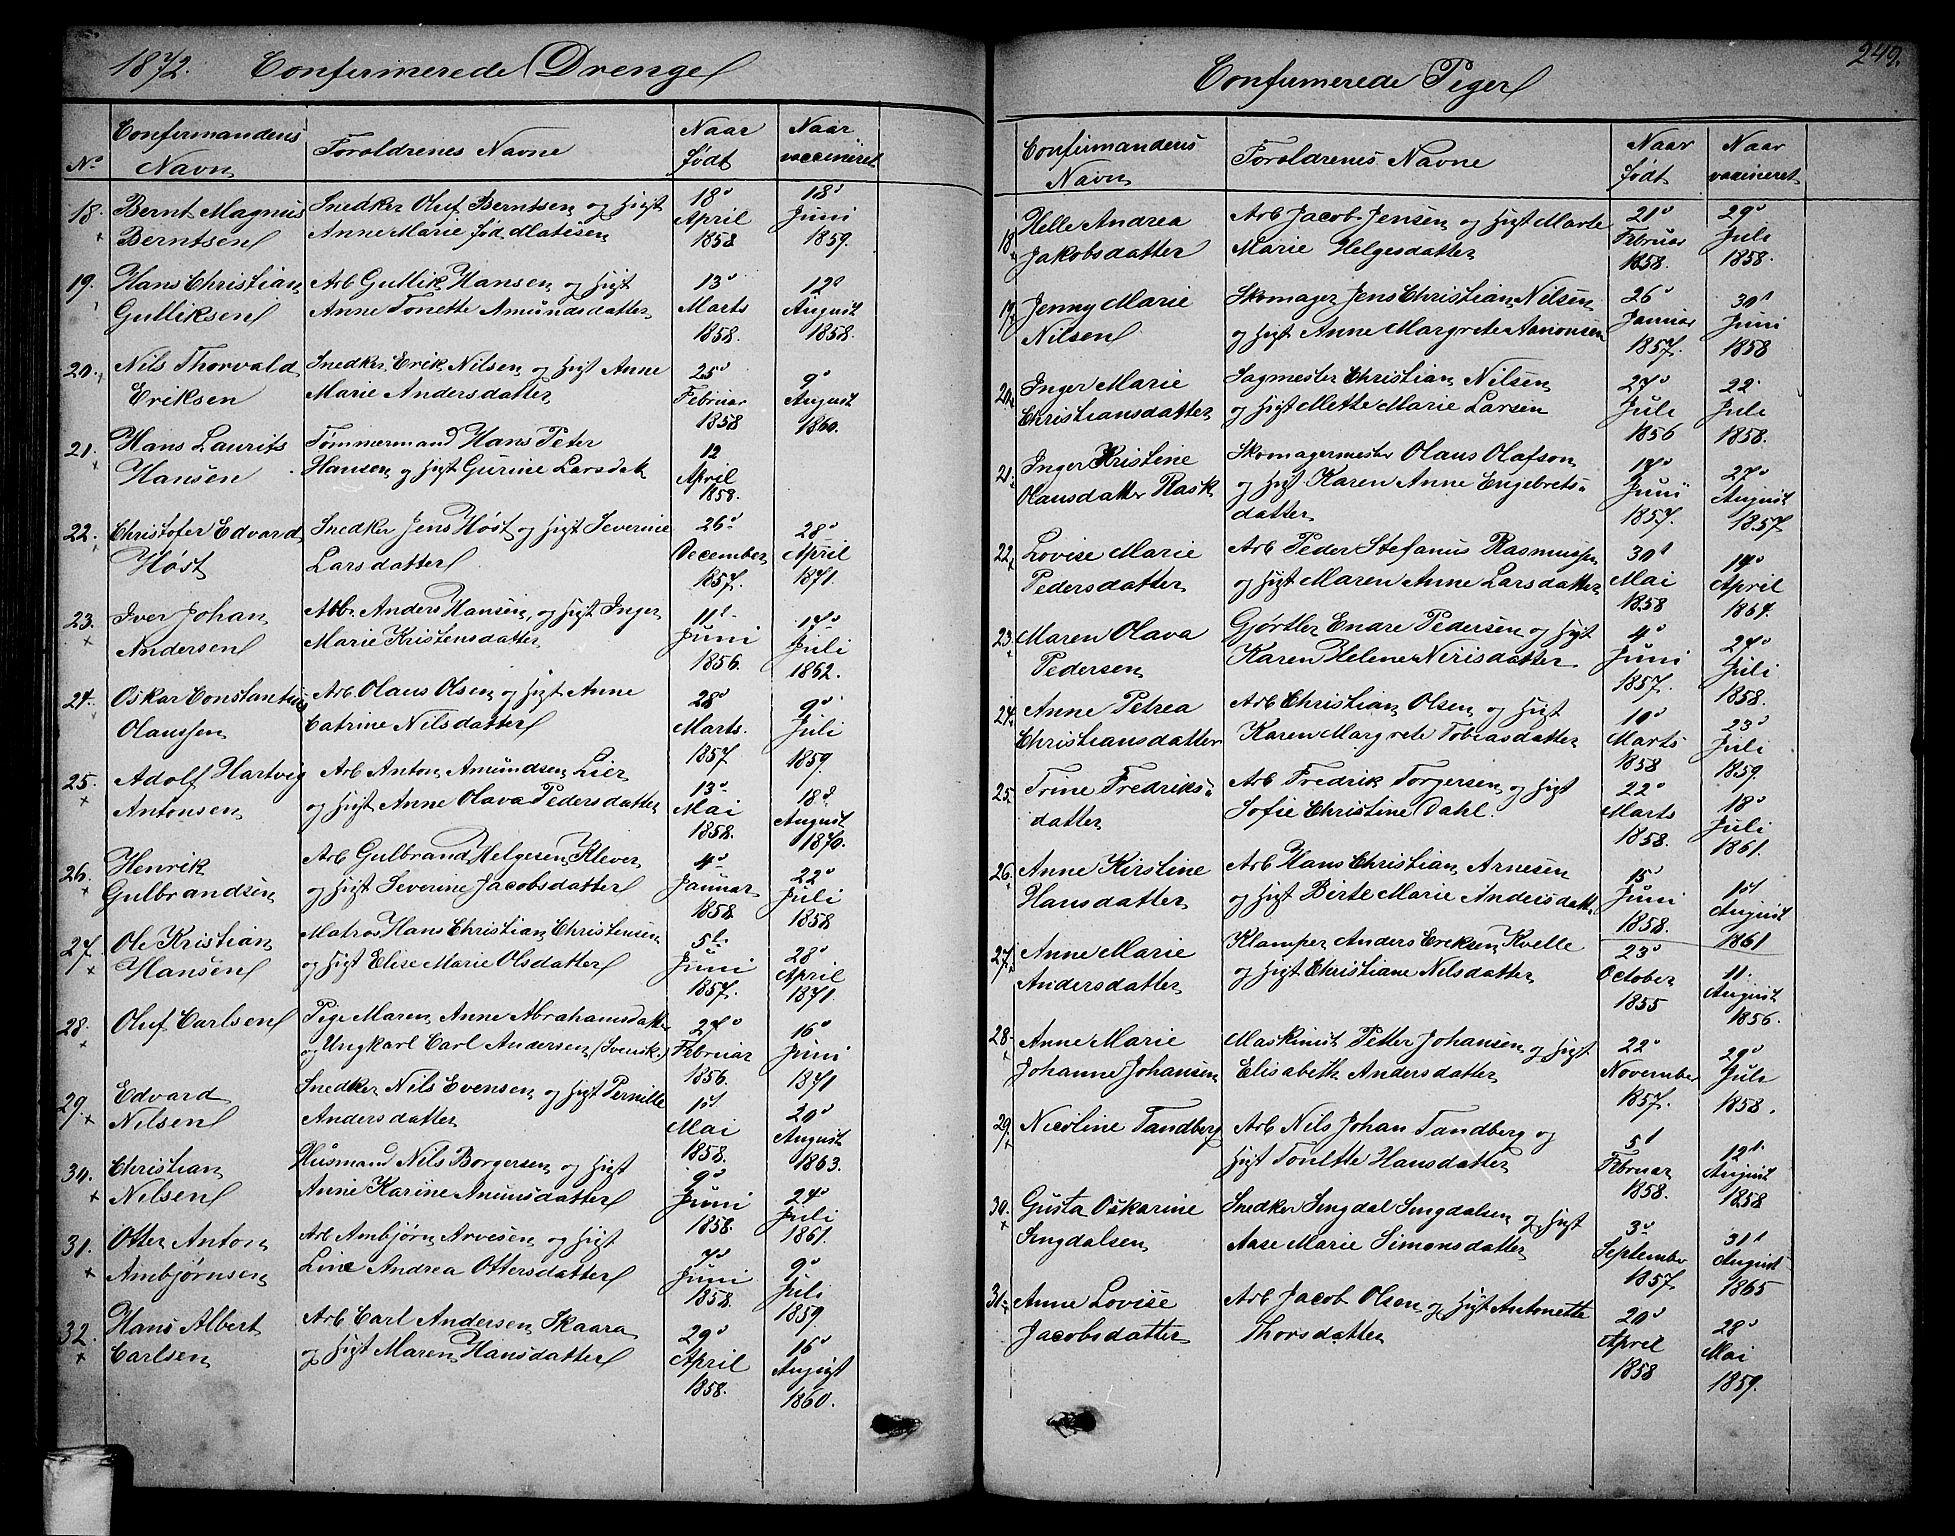 1872. Confirmerede Drenge
No
Confirmandens
Navn
Foroldrenes Navne
Naar
født
Naar
vaccineret
18.
Bernt Magnus
Berntsen
Snedker Oluf Berntsen og Hust
Anne Marie fød Matesen
18
April
1858
18
Juni
1859.
19.
Hans Christian
Gulliksen
Arb Gullik Hansen og Hust
Anne Tonette Amundsdatter
13
Marts
1858.
12
August
1858.
20.
Nils Thorvald
Eriksen
Snedker Erik Nilsen og Hust Anne
Marie Andersdatter
25
Februar
1858
9
August
1860.
21.
Hans Laurits
Hansen
Tømmermand Hans Peter
Hansen og Hust Gurine Larsdatt
12
April
1858.
22.
Christofer Edvard
Høst
Snedker Jens Høst og Hust Severine
Larsdatter
26
December
1857.
28
April
1871.
23.
Iver Johan
Andersen
Arb Anders Hansen og Hust Inger
Marie Kristensdatter
11
Juni
1856.
17
Juli
1862.
24.
Oskar Constantin
Olaussen
Arb Olaus Olsen og Hust Anne
Catrine Nilsdatter
28
Marts.
1857
9
Juli
1859.
25.
Adolf Hartvig
Antonsen
Arb Anton Amundsen Lier
og Hust Anne Olava Pedersdatter
13
Mai
1858.
18
August
1870.
26.
Henrik
Gulbrandsen
Arb Gulbrand Helgesen Klever
og Hust Severine Jacobsdatter
4
Januar
1858.
22
Juli
1858
27.
Ole Kristian
Hansen
Matros Hans Christian Christensen
og Hust Elise Marie Olsdatter
5
Juni
1857.
28
April
1871.
28.
Oluf Carlsen
Pige Maren Anne Abrahamsdatter
og Ungkarl Carl Andersen (Svensk)
27
Februar
1856.
16
Juni
1871
29.
Edvard
Nilsen
Snedker Nils Evensen og Hust Pernille
Andersdatter
1st
Mai
1858.
20
August
1863.
30.
Christian
Nilsen
Husmand Nils Borgersen og Hust
Anne Karine Anunsdatter
9
Juni
1858.
24
Juli
1861.
31.
Otter Anton
Ambjørnsen
Arb Ambjørn Arvesen og Hust
Line Andrea Ottersdatter
7
Juni
1858.
9
Juli
1859.
32.
Hans Albert
Carlsen
Arb Carl Andersen Skaara
og Hust Maren Hansdatter
29
April
1858.
16
August
1860.
249.
Confirmerede Piger
Confirmandens
Navn
Foroldrenes Navne
Naar
født
Naar
vaccineret
18
Helle Andrea
Jakobsdatter
Arb Jacob Jensen og Hust Marte
Marie Helgesdatter
21
Februar
1858.
29
Juli
1858.
19
Jenny Marie
Nilsen
Skomager Jens Christian Nilsen
og Hust Anne Margrete Aanonsen
26
Januar
1857.
30
Juni
1858
20.
Inger Marie
Christiansdatter
Sagmester Christian Nilsen
og Hust Mette Marie Larsen
27
Juli
1856
22
Juli
1858.
21.
Inger Kristine
Olausdatter Rask
Skomagermester Olaus Olafson
og Hust Karen Anne Engebrets-
datter
17
Juni
1857.
27
August
1857.
22.
Lovise Marie
Pedersdatter
Arb Peder Stefanus Rasmussen
og Hust Maren Anne Larsdatter
30
Mai
1858
19
April
1864.
23.
Maren Olava
Pedersen
Gjørtler Enare Pedersen og Hust
Karen Helene Nirisdatter
4
Juni
1857.
27
Juli
1858.
24.
Anne Petrea
Christiansdatter
Arb Christian Olsen og Hust
Karen Margrete Tobiasdatter
10
Marts
1858
23
Juli
1859.
25.
Trine Fredriks-
datter
Arb Fredrik Torgersen og Hust
Sofie Christine Dahl.
22
Marts
1858.
18
Juli
1861.
26.
Anne Kirstine
Hansdatter
Arb Hans Christian Arnesen
og Hust Birte Marie Andersdatt.
15
Juni
1858.
1st
August
1861
27.
Anne Marie
Andersdatter
Klamper Anders Eriksen Kvelle
og Hust Christiane Nilsdatter
23
October
1855
11.
August
1856.
28.
Anne Marie
Johanne Johansen
Maskinist Petter Johansen og Hust
Elisabeth Andersdatter
22
November
1857.
29
Juli
1858.
29.
Nicoline Tandberg
Arb Nils Johan Tandberg og
Hust Tonette Hansdatter
5
Februar
1858.
12
August
1858
30.
Gusta Oskarine
Singdalsen
Snedker Singdal Singdalsen og Hust
Aase Marie Simonsdatter
3
September
1857.
31
August
1865
31.
Anne Lovise
Jacobsdatter
Arb Jacob Olsen og Hust Antonette
Thorsdatter
20
April
1858
28
Mai
1859.